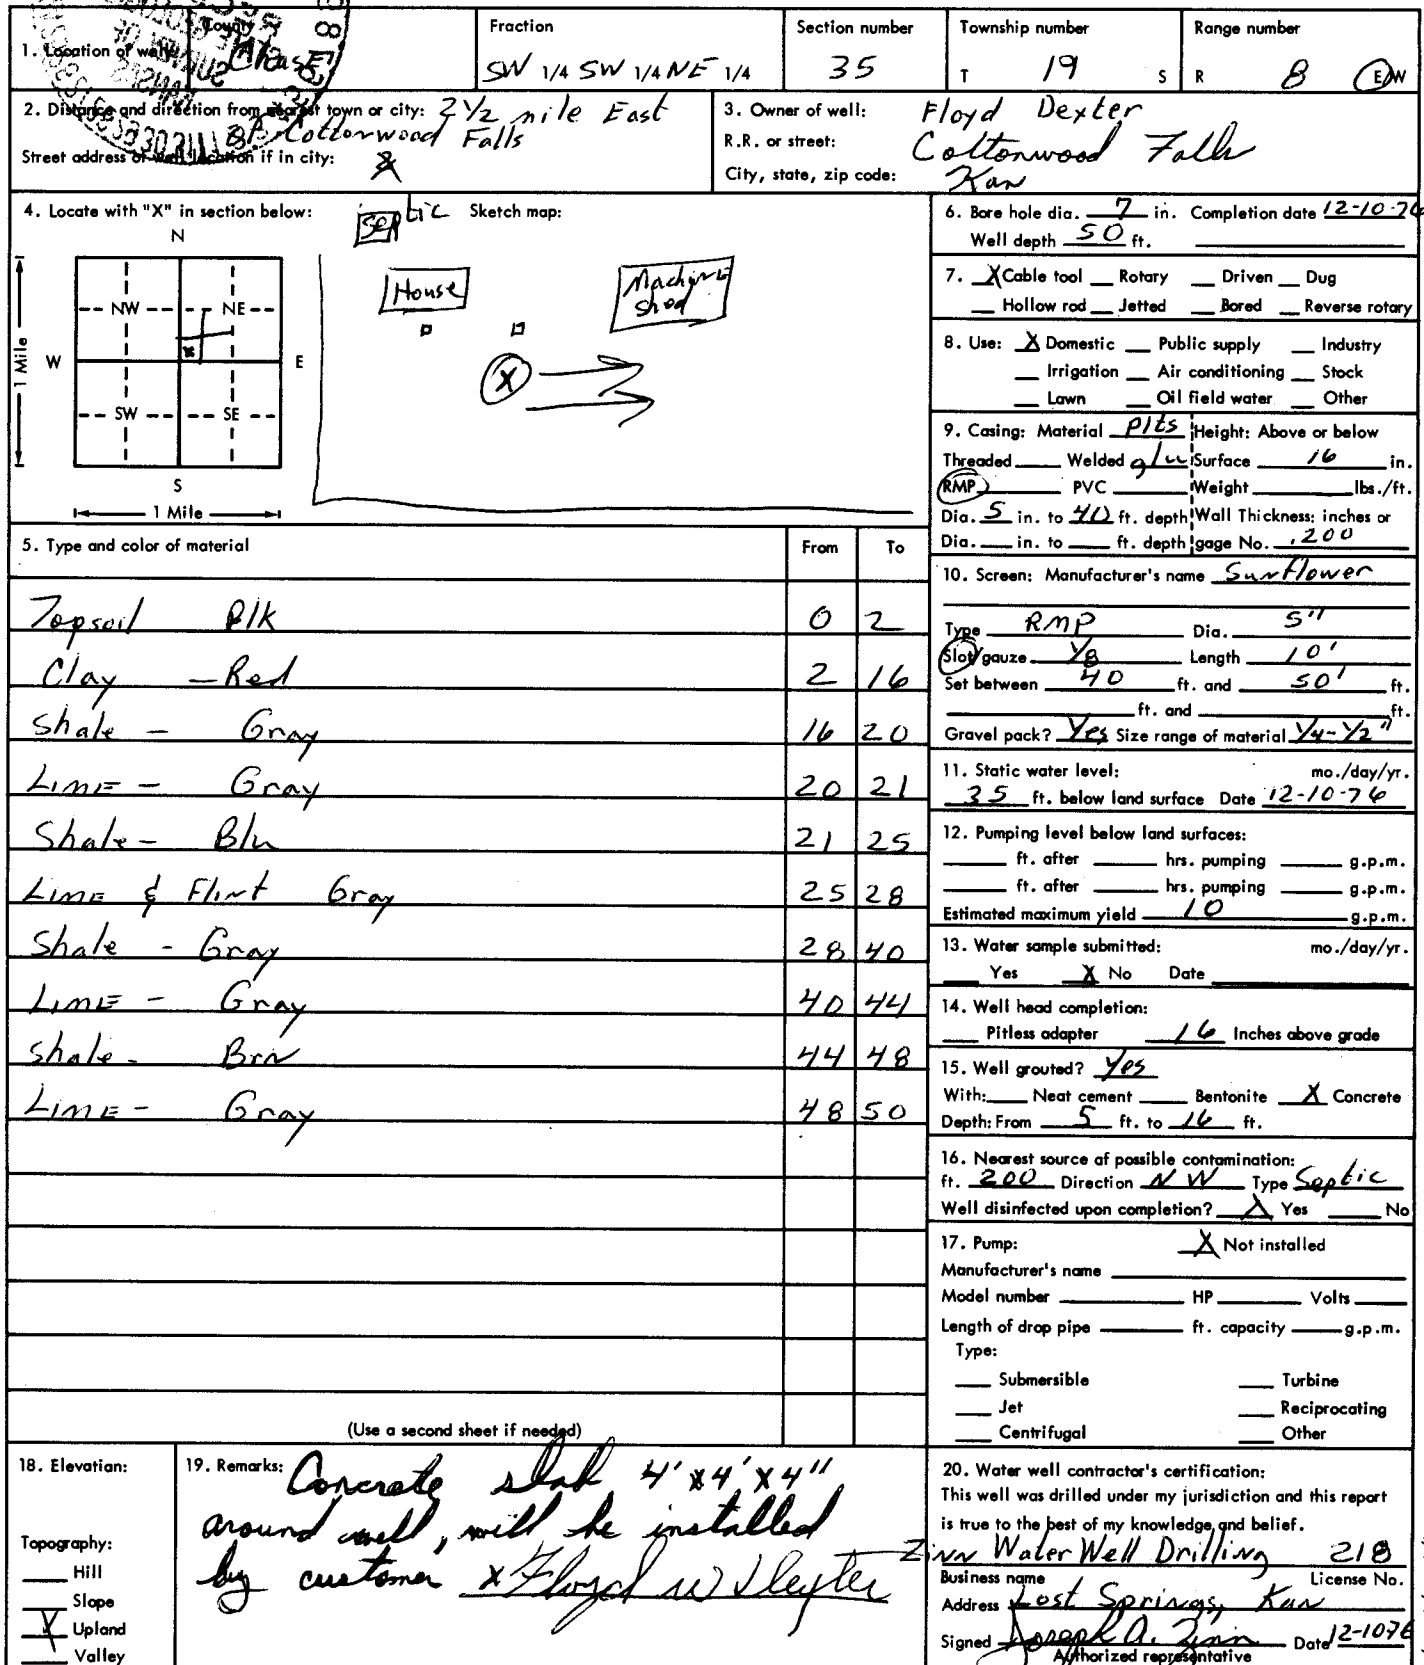 County Fraction Section number Township number Range number
1. Location of well: Chase SW 1/4 SW 1/4 NE 1/4 35 T 19 S R 8 E/W
2. Distance and direction from nearest town or city: 2 1/2 mile East
Cottonwood Falls
Street address of well location if in city:
3. Owner of well: Floyd Dexter
R.R. or street: Cottonwood Falls
City, state, zip code: Kan
4. Locate with "X" in section below: Septic Sketch map:
N
NW NE
W E
SW SE
S
1 Mile
1 Mile
House
Machine Shed
X
5. Type and color of material From To
Topsoil Blk 0 2
Clay - Red 2 16
Shale - Gray 16 20
LIME - Gray 20 21
Shale - Blu 21 25
LIME & Flint Gray 25 28
Shale - Gray 28 40
LIME - Gray 40 44
Shale - Brn 44 48
LIME - Gray 48 50
(Use a second sheet if needed)
6. Bore hole dia. 7 in. Completion date 12-10-76
Well depth 50 ft.
7. X Cable tool Rotary Driven Dug
Hollow rod Jetted Bored Reverse rotary
8. Use: X Domestic Public supply Industry
Irrigation Air conditioning Stock
Lawn Oil field water Other
9. Casing: Material Plts Height: Above or below
Threaded Welded glu Surface 16 in.
RMP PVC Weight lbs./ft.
Dia. 5 in. to 40 ft. depth Wall Thickness: inches or
Dia. in. to ft. depth gage No. .200
10. Screen: Manufacturer's name Sunflower
Type RMP Dia. 5"
Slot/gauze 1/8 Length 10'
Set between 40 ft. and 50' ft.
ft. and ft.
Gravel pack? Yes Size range of material 1/4-1/2"
11. Static water level: mo./day/yr.
35 ft. below land surface Date 12-10-76
12. Pumping level below land surfaces:
ft. after hrs. pumping g.p.m.
ft. after hrs. pumping g.p.m.
Estimated maximum yield 10 g.p.m.
13. Water sample submitted: mo./day/yr.
Yes X No Date
14. Well head completion:
Pitless adapter 16 Inches above grade
15. Well grouted? Yes
With: Neat cement Bentonite X Concrete
Depth: From 5 ft. to 16 ft.
16. Nearest source of possible contamination:
ft. 200 Direction NW Type Septic
Well disinfected upon completion? X Yes No
17. Pump: X Not installed
Manufacturer's name
Model number HP Volts
Length of drop pipe ft. capacity g.p.m.
Type:
Submersible Turbine
Jet Reciprocating
Centrifugal Other
18. Elevation:
Topography:
Hill
Slope
X Upland
Valley
19. Remarks: Concrete slab 4' x 4' x 4"
around well, will be installed
by customer x Floyd W Dexter
20. Water well contractor's certification:
This well was drilled under my jurisdiction and this report
is true to the best of my knowledge and belief.
Zinn Water Well Drilling 218
Business name License No.
Address Lost Springs, Kan
Signed Joseph A. Zinn Date 12-10-76
Authorized representative